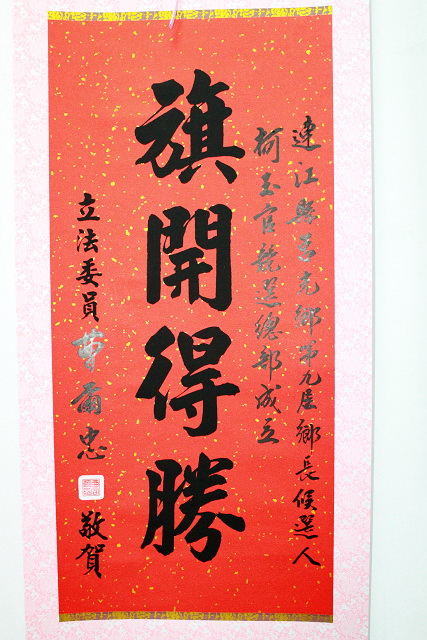 連江縣莒光鄉第九屆鄉長候選人
柯玉官競選總部成立
旗開得勝
立法委員曹爾忠
敬賀